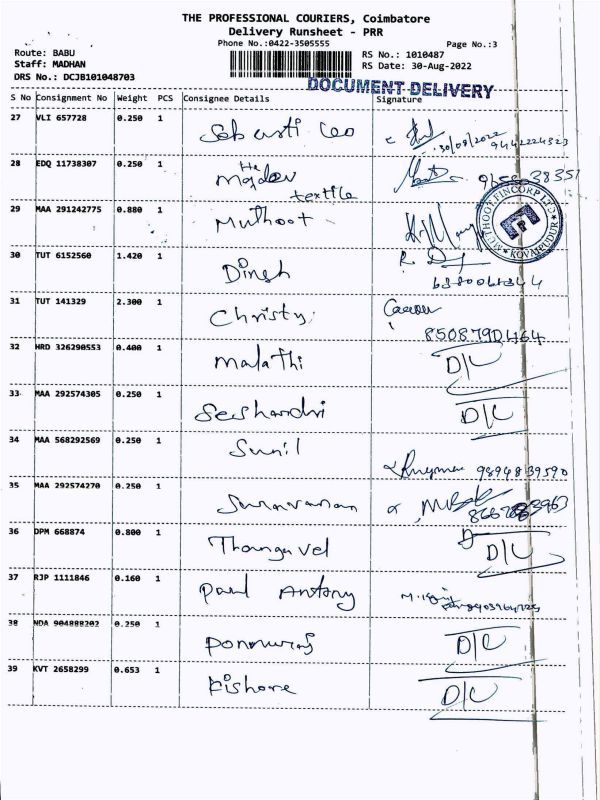 THE PROFESSIONAL COURIERS, Coimbatore
Delivery Runsheet - PRR
Phone No.:0422-3505555
Page No.:3
Route: BABU
Staff: MADHAN
DRS No.: DCJB101048703
RS No.: 1010487
RS Date: 30-Aug-2022
DOCUMENT DELIVERY
S No Consignment No Weight PCS Consignee Details Signature
27 VLI 657728 0.250 1 Sebasti Leo
30/08/2022
9442224323
28 EDQ 11738307 0.250 1 Majdev
textile
29 MAA 291242775 0.880 1 Muthoot
MUTHOOT FINCORP LTD
KOVAIPUDUR
30 TUT 6152560 1.420 1 Dinesh
31 TUT 141329 2.300 1 Christy
32 HRD 326290553 0.400 1 Malathi D/C
33 MAA 292574305 0.250 1 Seshandri D/C
34 MAA 568292569 0.250 1 Sunil
9894839590
35 MAA 292574270 0.250 1 Saravanan
36 DPM 668874 0.800 1 Thangavel D/C
37 RJP 1111846 0.160 1 Paul Antony
38 NDA 904888202 0.250 1 Ponnuraj D/C
39 KVT 2658299 0.653 1 Kishore D/C